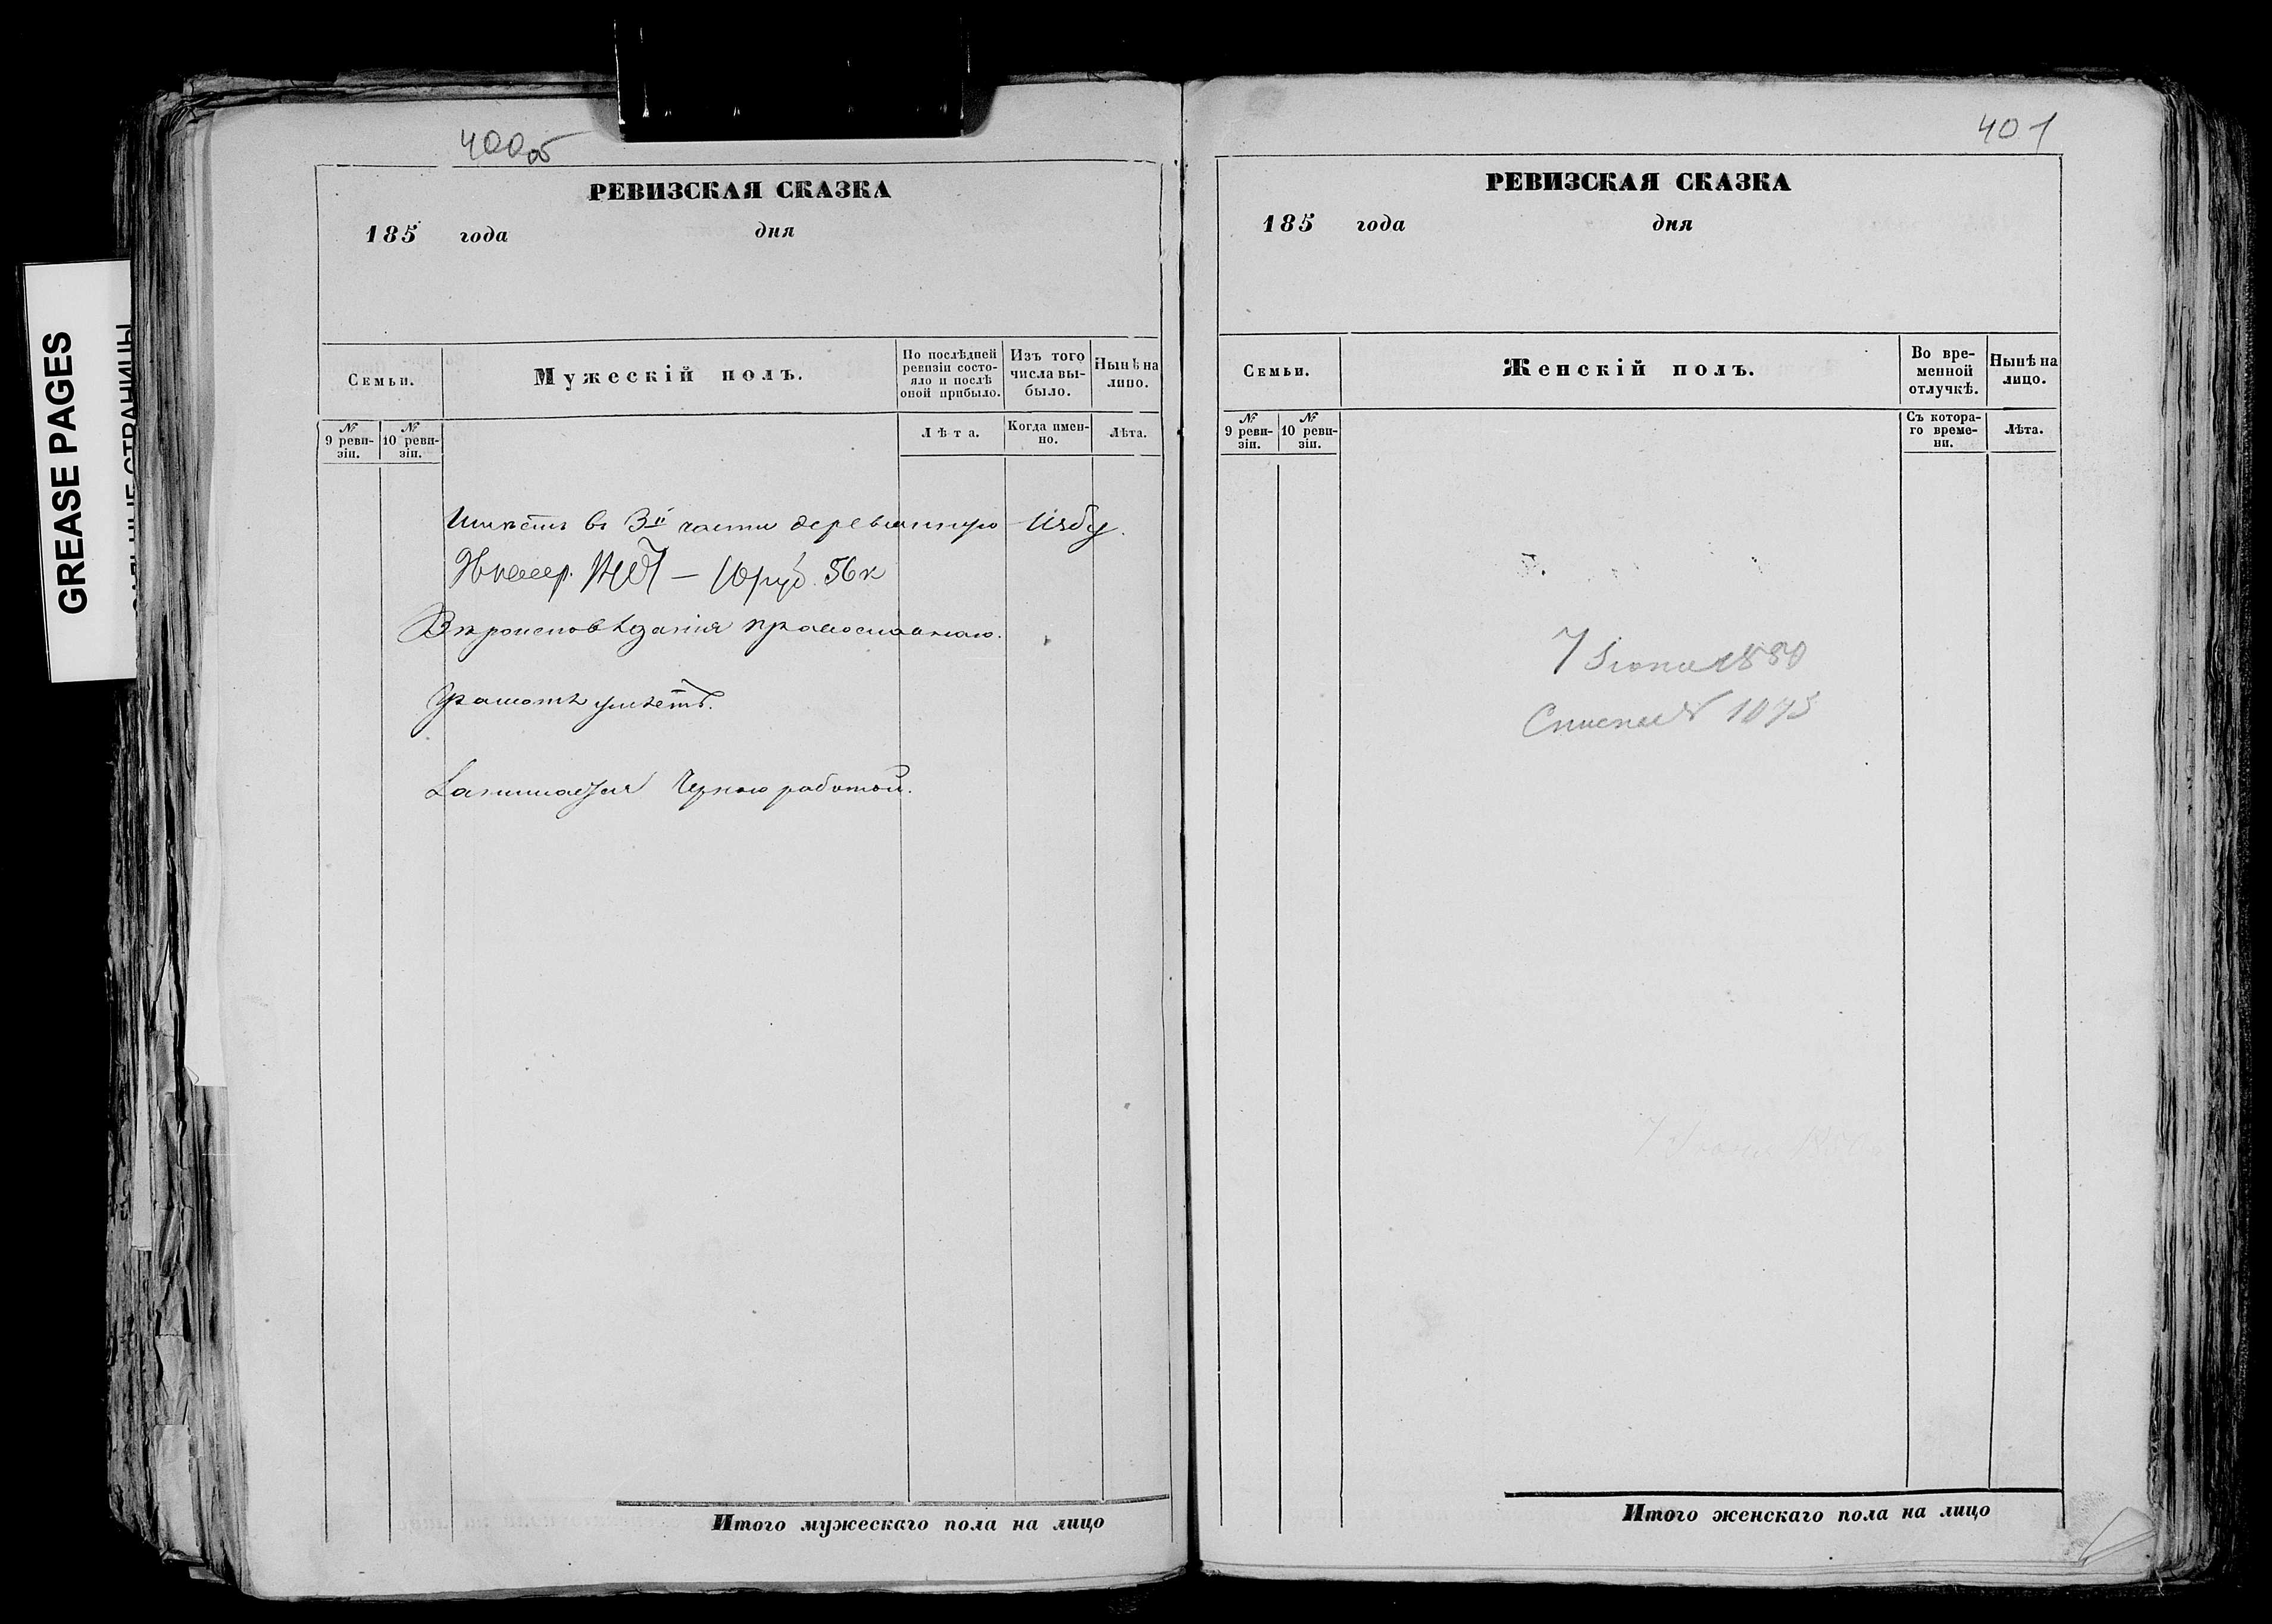 GREASE PAGES
400об
РЕВИЗСКАЯ СКАЗКА
185 года дня
Семьи.
Мужескій полъ.
По послѣдней ревизіи состояло и послѣ оной прибыло.
Изъ того числа выбыло.
Нынѣ на лицо.
№ 9 ревизіи.
№ 10 ревизіи.
Лѣта.
Когда именно.
Лѣта.
Имѣетъ въ 3й части деревянную избу.
10 руб. 56 к
Вѣроисповѣданія православнаго.
Грамотѣ умѣетъ.
Занимается Черною работой.
Итого мужескаго пола на лицо
401
РЕВИЗСКАЯ СКАЗКА
185 года дня
Семьи.
Женскій полъ.
Во временной отлучкѣ.
Нынѣ на лицо.
№ 9 ревизіи.
№ 10 ревизіи.
Съ котораго времени.
Лѣта.
7 Іюня
Итого женскаго пола на лицо